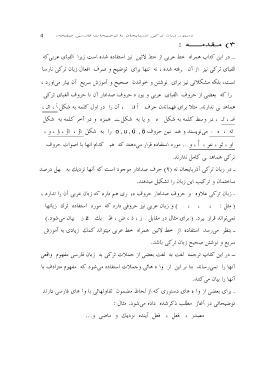 ۳) مقدمـــه :
ـ در این کتاب همراه خط عربی از خط لاتین نیز استفاده شده است زیرا الفبای عربی که
الفبای ترکی نیز از آن گرفته شده ، نه تنها برای توضیح و صرف افعال زبان ترکی نارسا
است، بلکه مشکلاتی نیز برای نوشتن و خواندن صحیح و آموزش سریع آن ببار می‌آورد ،
را که بعضی از حروف الفبای عربی و بویژه حروف صدادار آن با حروف الفبای ترکی
هماهنگی ندارند. مثلا برای فهماندن حرف
در وسط کلمه به شکل و یا به شکل همزه و در آخر کلمه به شکل
می‌نویسند و همچنین حروف o , u , ü , ö را به شکل
مورد استفاده قرار می‌دهند که هیچ کدام آنها با اصوات حروف
ترکی هماهنگی کامل ندارند.
ـ در زبان ترکی آذربایجان نه (۹) حرف صدادار موجود است که آنها نزدیک به چهل درصد
ساختمان و ترکیب این زبان را تشکیل میدهند.
ـ زبان ترکی علاوه بر حروف صدادار حروف دیگری هم دارد که زبان عربی آن را ندارد ،
( مثل : ) و زبان عربی نیز حروفی دارد که مورد استفاده ترک زبانها
نمی‌تواند قرار گیرد. ( برای مثال در مقابل بیان می‌شود.)
ـ بنظر می‌رسد استفاده از خط لاتین همراه خط عربی میتواند کمک زیادی به آموزش
سریع و نوشتن صحیح زبان ترکی باشد.
ـ در این کتاب ترجمه لغت به لغت بعضی از جملات ترکی به زبان فارسی مفهوم واقعی
آنها را نمی‌رساند بنابراین از واژه هائی وجملات استفاده می‌شود که مفهوم مترادف با
آنها را بیان می‌کند.
ـ برای بعضی از واژه های دستوری که از لحاظ مضمون تفاوتهائی با واژه های فارسی دارند
توضیحاتی در آغاز مطلب ذکر شده داده می‌شود. مثال :
مصدر ، فعل ، فعل آینده نزدیک و ماضی و...